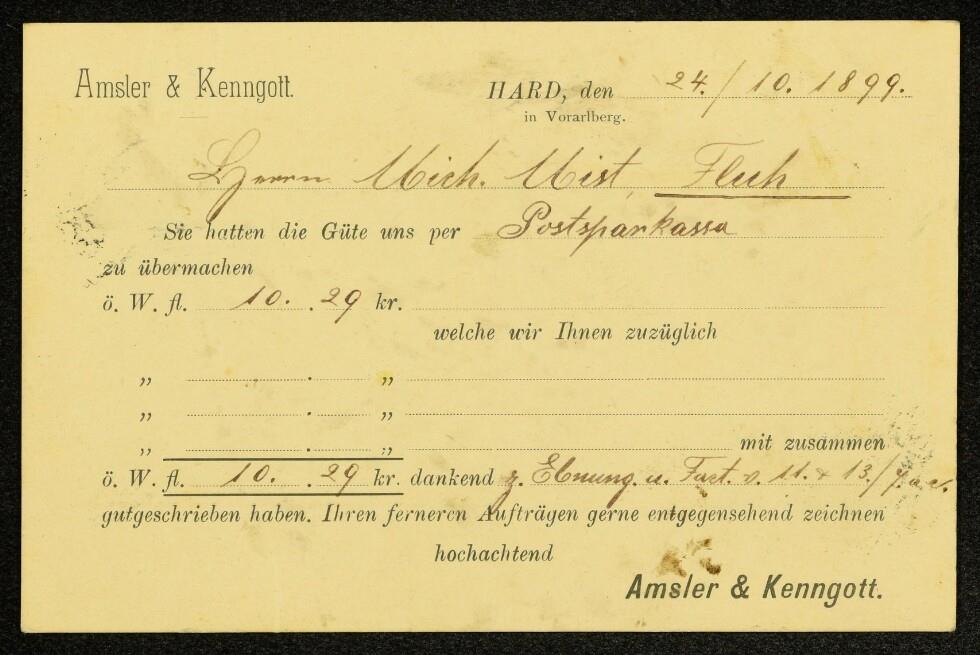 Amsler & Kenngott.
HARD, den 24./10. 1899.
in Vorarlberg.
Herrn Mich. Mist, Fluh
Sie hatten die Güte uns per Postsparkassa
zu übermachen
ö. W. fl. 10. . 29 kr.
welche wir Ihnen zuzüglich
„ . „
„ . „
„ . „ mit zusammen
ö. W. fl. 10. . 29 kr. dankend z. u. Fact. v. 11. + 13./7. a. c.
gutgeschrieben haben. Ihren ferneren Aufträgen gerne entgegensehend zeichnen
hochachtend
Amsler & Kenngott.